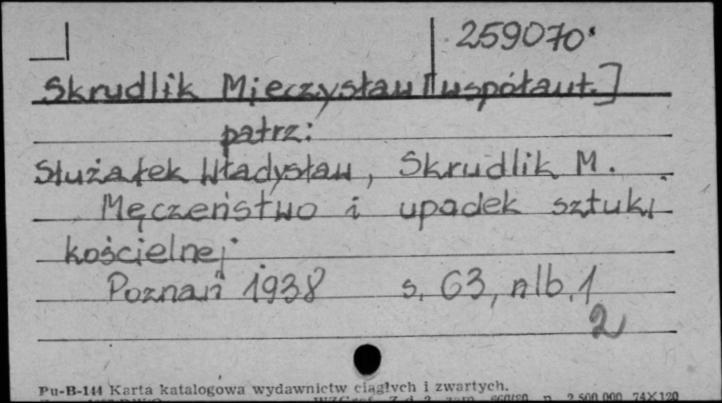 259070
Skrudlik Mieczysław [współaut.]
patrz:
Służałek Władysław, Skrudlik M.
Męczeństwo i upadek sztuki
kościelnej
Poznań 1938 s. 63, nlb. 1
2
Pu-B-144 Karta katalogowa wydawnictw ciągłych i zwartych.
2 500 000 74X120